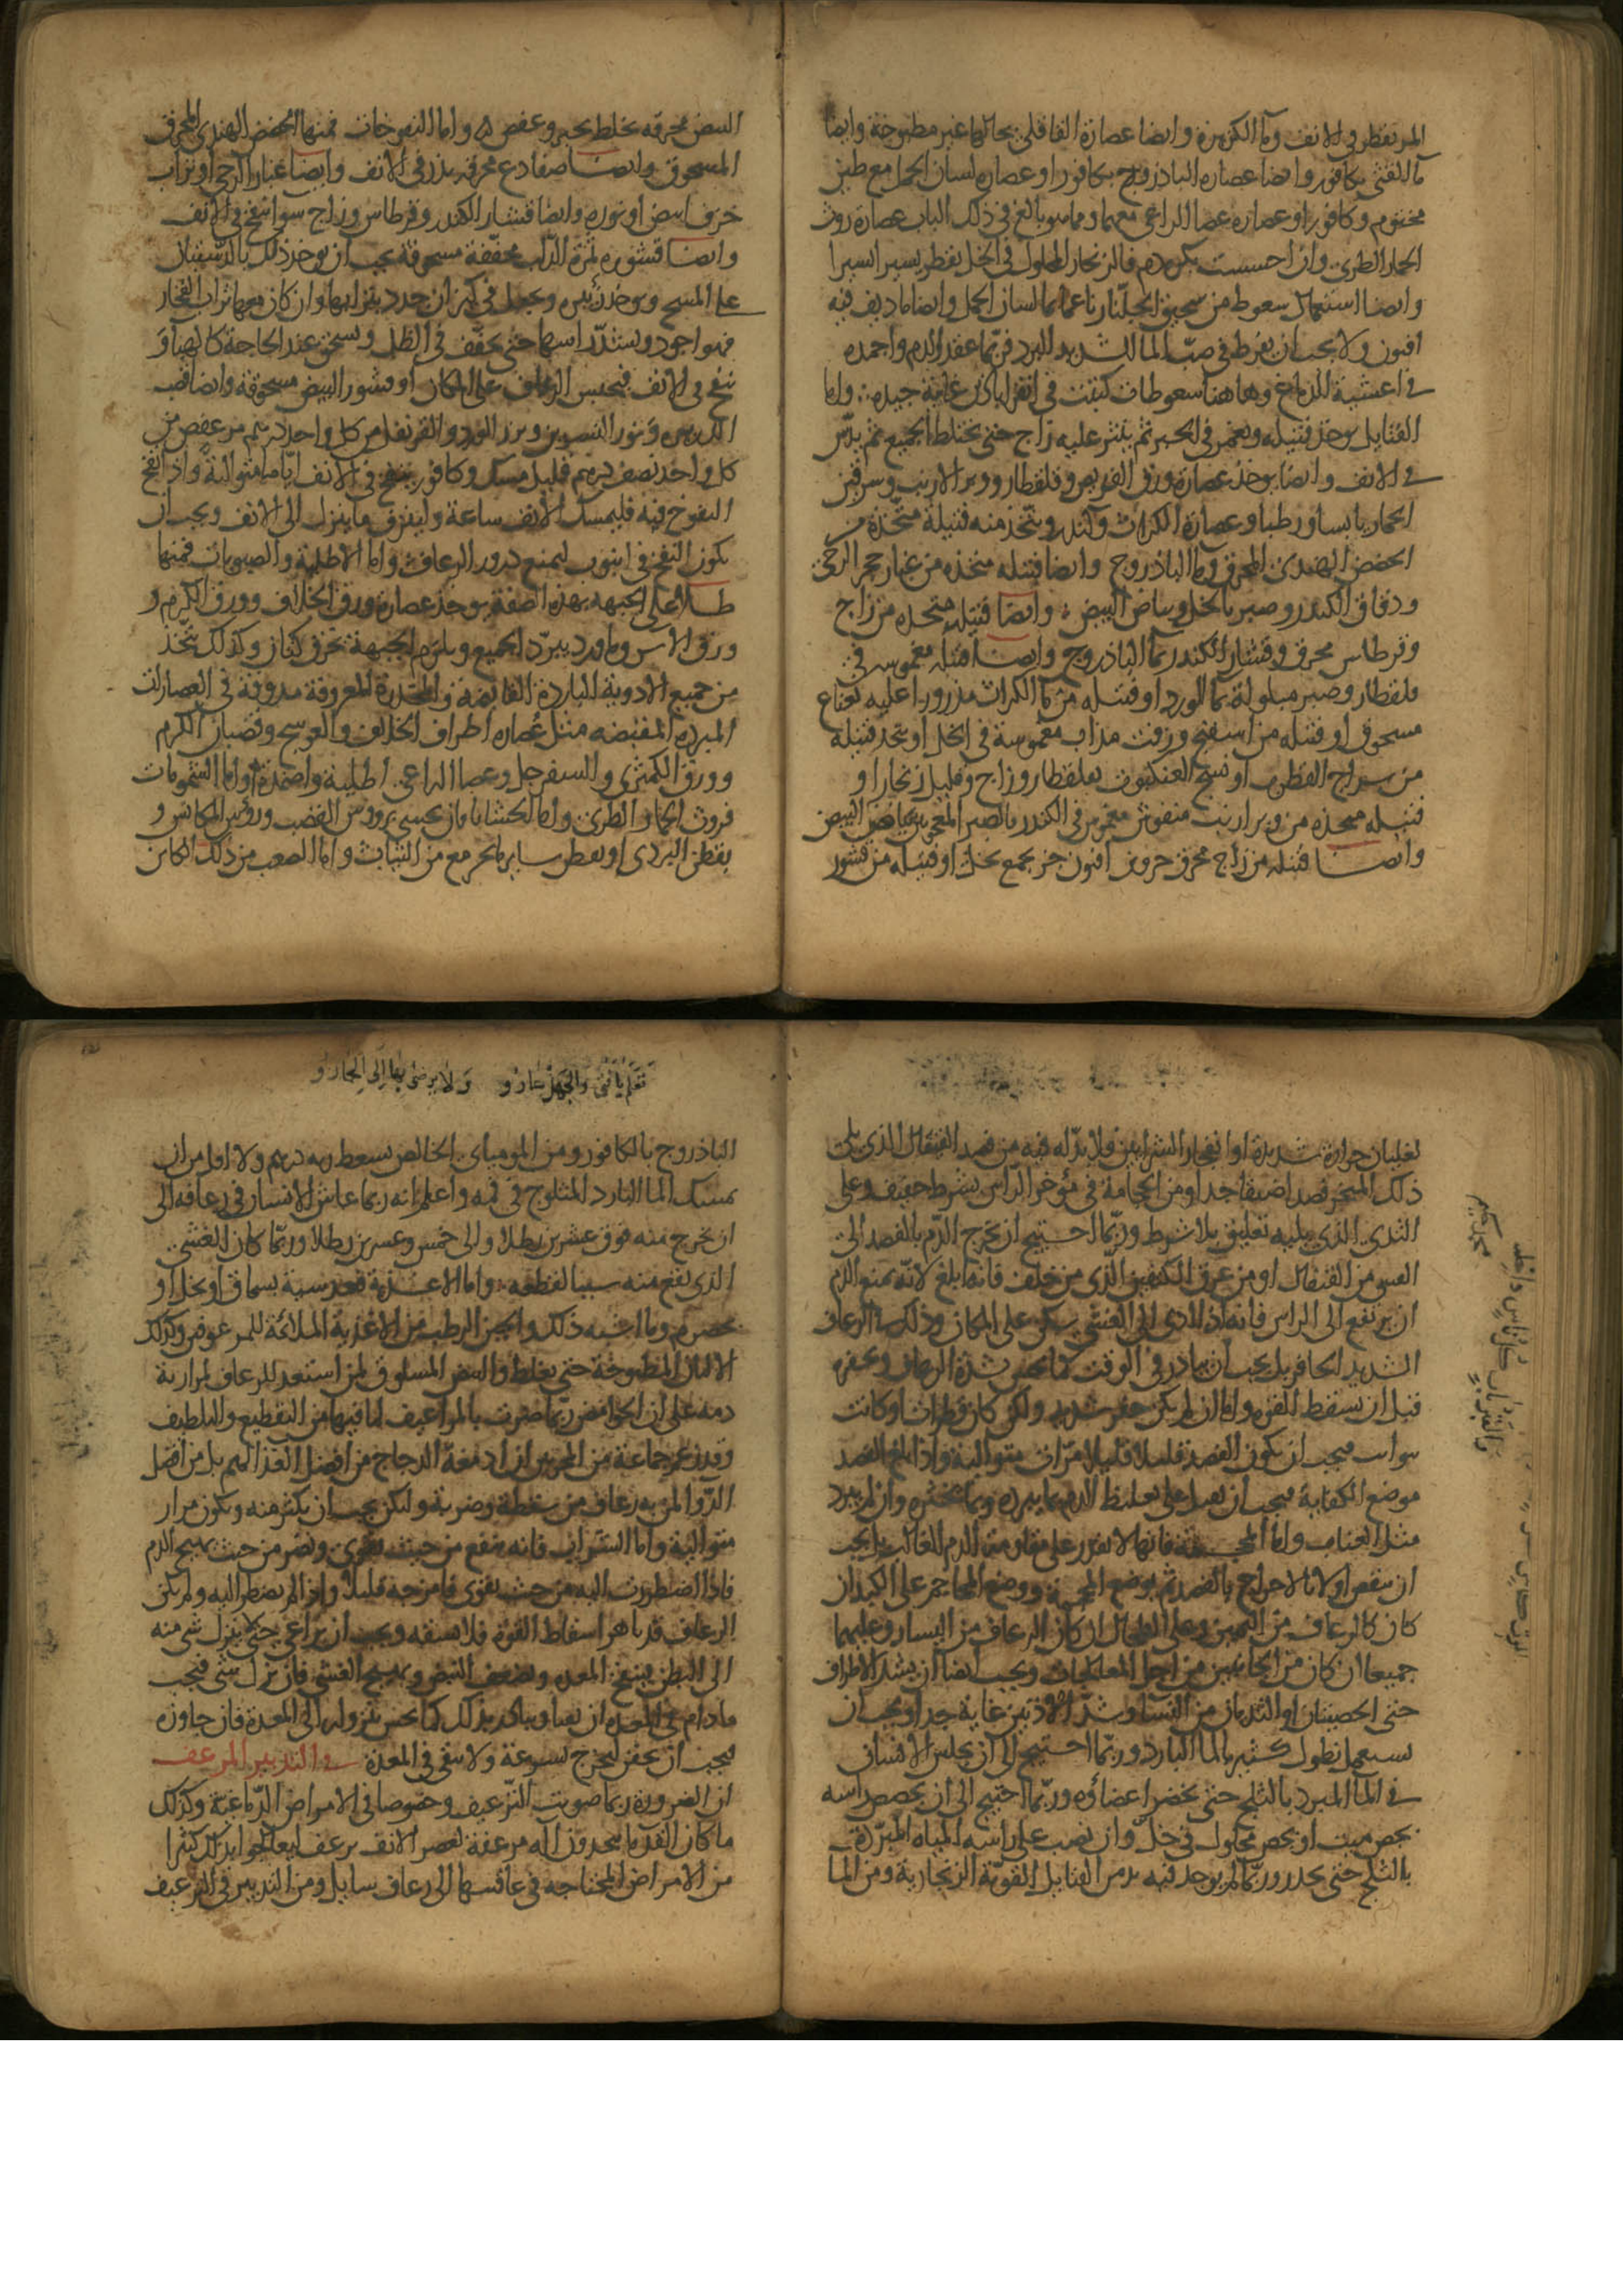 المر تقطر في الانف وما الكزبرة وايضا عصارة القاقلى بحالها غير مطبوخة وايضا
ما القثى بكافور وايضا عصاره الباذروج بكافور او عصاره لسان الحمل مع طين
مختوم وكافور او عصاره عصا الراعى معهما ومما هو بالغ في ذلك الباب عصارة روث
الحمار الطرى وان احسست بكره دم فالزنجار المحلول في الخل يقطر يسيرا يسيرا
وايضا استعمال سعوط من سحيق الجلنار ناعما بما لسان الحمل وايضا ما ديف فيه
افيون ولا يجب ان يفرط في صب الما الشديد البرد فربما عقد الدم واجمده
في اغشية الدماغ وهاهنا سعوطات كتبت في اقراباذين غاية جيده واما
الفتايل يوخذ فتيله وتغمر في الحبر ثم ينثر عليه زاج حتى يختلط الجميع ثم يدس
في الانف وايضا يوخذ عصارة ورق القريص وقلقطار ووبر الارنب وسرقين
الحمار يابسا ورطبا وعصارة الكراث وكندر ويتخذ منه فتيلة متخذة من
الحضض الهندى المحرق وما الباذروج وايضا فتيله متخذه من غبار حجر الرحى
ودقاق الكندر وصبر بالخل وبياض البيض وايضا فتيله متخذه من زاج
وقرطاس محرق وقشار الكندر بما الباذروج وايضا فتيله مغموسه في
قلقطار وصبر مبلولة بما الورد او فتيله من ما الكراث مذرور اعليه نعناع
مسحوق او فتيله من اسفنج وزفت مذاب مغموسة في الخل او يتخذ فتيله
من سراج القطرب او نسج العنكبوت بقلقطار وزاج وقليل زنجار او
فتيله متخذه من وبر ارنب منفوش مغموس في الكندر بالصبر المعجون ببياض البيض
وايضا فتيله من زاج محرق جزوين افيون جز يجمع بخل او فتيله من قشور
البيض محرقه يخلط بحبر وعفص واما النفوخات فمنها الحضض الهندى المحرق
المسحوق وايضا ضفادع محرقه يذر في الانف وايضا غبار الرحى او تراب
خزف ابيض او نوره وايضا قشار الكندر وقرطاس وزاج سوا ينفخ في الانف
وايضا قشوره ثمرة الدلب مجففة مسحوقة يجب ان يوخذ ذلك بالدستبلان
على المسح ويجعل في كيزان جدد بترابها وان كان معها تراب الفخار
فهو اجود ويشد راسها حتى يجفف في الظل ويسحق عند الحاجة كالهبا و
ينفخ في الانف فيحبس الرعاف على المكان او قشور البيض مسحوقة وايضا قصب
ونور النسرين وبزر الورد والقرنفل من كل واحد درهم مر عفص من
كل واحد نصف درهم قليل مسك وكافور ينفخ في الانف اياما متوالية واذا نفخ
النفوخ فيه فليمسك الانف ساعة وليبزق ما ينزل الى الانف ويجب ان
يكون النفخ في انبوب ليمنع درور الرعاف واما الاطلية والصبوبات فمنها
طلا على الجبهه بهذه الصفة يوخذ عصارة ورق الخلاف وورق الكرم و
ورق الاس وماورد يبرد الجميع ويلزم الجبهة بخرق كتان وكذلك يتخذ
من جميع الادوية الباردة القابضه والمخدرة المعروفة مدوفة في العصارات
المبرده المقبضه مثل عصاره اطراف الخلاف والعوسج وقضبان الكرم
وورق الكمثرى والسفرجل وعصا الراعى اطلية واضمدة واما الشمومات
فروث الحمار الطرى واما الحشايا فان يحشى بروس القصب وروس المكانس و
بقطن البردى او بقطن ساير ما يخرج مع من النبات واما الصعب من ذلك الكاين
لغليان حرارة شديدة او انفجار الشرايين فلا بد له فيه من فصد القيفال الذى يلى
ذلك المنخر فصدا ضيقا جدا ومن الحجامة في موخر الراس بشرط خفيف وعلى
الثدى الذى يليه تعليق بلا شرط وربما احتيج ان يخرج الدم بالفصد الى
الغشى من القيفال او من عرق الكتفين الذى من خلف فانه ابلغ لانه يمنع الدم
ان يرتفع الى الراس فانه اذا ادى الى الغشى سكن على المكان وذلك في الرعاف
الشديد الحافز بل يجب ان يبادر في الوقت كما يحس شدة الرعاف وحفزه
قبل ان تسقط القوه واما ان لم يكن حفز شديد ولكن كان قطرات او كانت
نوايب فيجب ان يكون الفصد قليلا قليلا مرات متوالية واذا بلغ الفصد
موضع الكفاية فيجب ان يقبل على تغليظ الدم بما يبرده وبما يخثره وان لم يبرد
مثل العناب واما المحجمة فانها لا تقدر على مقاومة الدم الغالب بل يجب
ان ينقص اولا بالاخراج بالفصد ثم يوضع المحجمة ووضع المحاجم على الكبد ان
كان الرعاف من اليمين وعلى الطحال ان كان الرعاف من اليسار وعليهما
جميعا ان كان من الجانبين من اجل المعالجات ويجب ايضا ان يشد الاطراف
حتى الخصيتان او الثديان من النسا وشد الاذنين غاية جدا ويجب ان
يستعمل نطول كثير بالما البارد وربما احتيج الى ان يجلس الانسان
في الما المبرد بالثلج حتى يخضر اعضاؤه وربما احتيج الى ان يجصص راسه
بجص ميت او بجص محلول في خل وان يصب على راسه المياه المبردة
بالثلج حتى يخدر وربما لم يوجد فيه بد من الفتايل القوية الزنجارية ومن الما
ولا يرضى بها الى الحمار و
الباذروج بالكافور ومن الموميائى الخالص يسعط به درهم ولا اقل من ان
يمسك الما البارد المثلوج في فمه واعلم انه ربما عاش الانسان في رعافه الى
ان يخرج منه فوق عشرين رطلا والى خمس وعشرين رطلا وربما كان الغشى
الذى يقع منه سببا لقطعه واما الاغذية فعدسية بسماق او بخل او
بحصرم وما اشبه ذلك والجبن الرطب من الاغذية الملائمة للمرعوفين وكذلك
الالبان المطبوخة حتى يغلظ والبيض المسلوق لمن استعد للرعاف لمرارية
دمه على ان الحوامض ربما ضرت بالمراعيف لما فيها من التقطيع والتلطيف
وقد زعم جماعة من المجربين ان ادمغة الدجاج من افضل الغذا لهم بل من افضل
الدوا لمن به رعاف من سقطة وضربة ولكن يجب ان يكثر منه ويكون مرار
متوالية واما الشراب فانه ينفع من حيث يقوى ويضر من حيث يهيج الدم
فاذا اضطررت اليه من حيث يقوى فامزجه قليلا واذا لم يضطر اليه ولم يكن
الرعاف قد ناهز اسقاط القوة فلا تسقه ويجب ان يراعى حتى لا ينزل شى منه
الى البطن فينفخ المعده ويضعف النبض ويهيج الغشى فان نزل شى فيجب
ما دام في المعده ان يقيا ويبادر بذلك كما يحس بنزوله الى المعدة فان جاوزه
فيجب ان يحقن ليخرج بسرعة ولا يبقى في المعدة في التدبير المرعف
ان الضرورة ربما صوبت الترعيف وخصوصا في الامراض الدماغية وكذلك
ما كان القدما يتخذون اله مرعفة لعصر الانف يرعف ليعالجوا بذلك كثيرا
من الامراض المحتاجه في عاقبتها الى رعاف سايل ومن التدبير في الترعيف